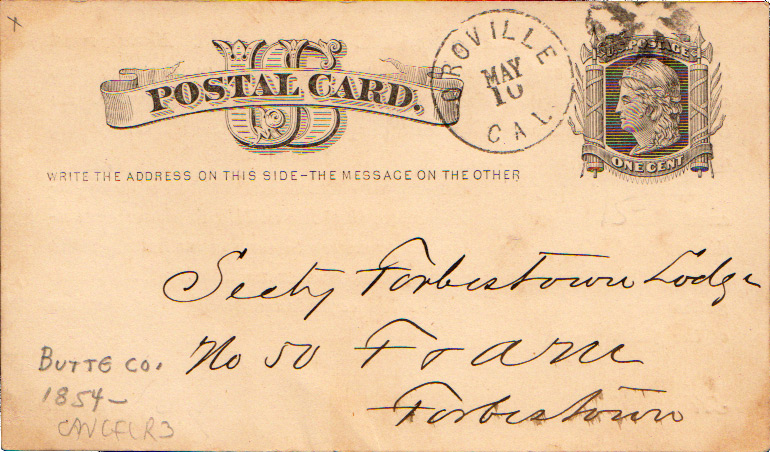 U.S. POSTAGE
US
POSTAL CARD.
OROVILLE
MAY
10
CAL.
ONE CENT
WRITE THE ADDRESS ON THIS SIDE–THE MESSAGE ON THE OTHER
Secty Forbestown Lodge
No 50 F & AM
Forbestown
BUTTE CO.
1854–